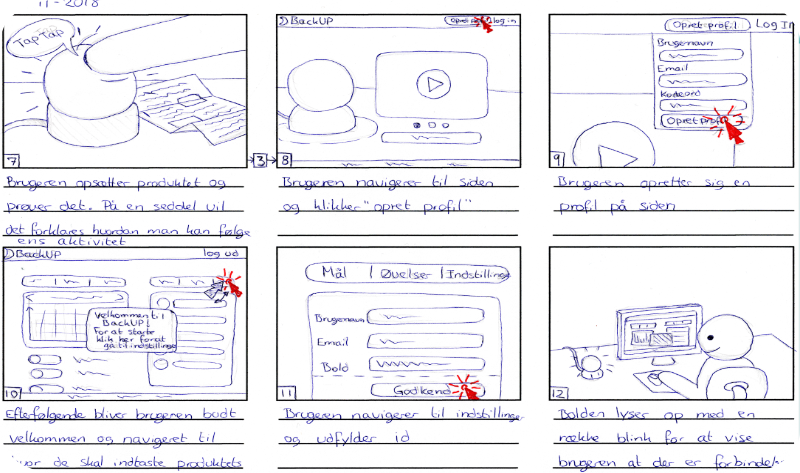 11-2018
Tap Tap
7
3
Brugeren opsætter produktet og
prøver det. På en seddel vil
det forklares hvordan man kan følge
ens aktivitet
BackUP
Opret profil
log in
8
Brugeren navigerer til siden
og klikker "opret profil"
Opret profil
Log In
Brugernavn
Email
Kodeord
Opret profil
9
Brugeren opretter sig en
profil på siden
BackUP
log ud
Velkommen til
BackUP!
For at starte
klik her for at
gå til indstillinge
10
Efterfølgende bliver brugeren budt
velkommen og navigeret til
hvor de skal indtaste produktets
Mål | Øvelser | Indstillinge
Brugernavn
Email
Bold
Godkend
11
Brugeren navigerer til indstillinger
og udfylder id
12
Bolden lyser op med en
række blink for at vise
brugeren at der er forbindel